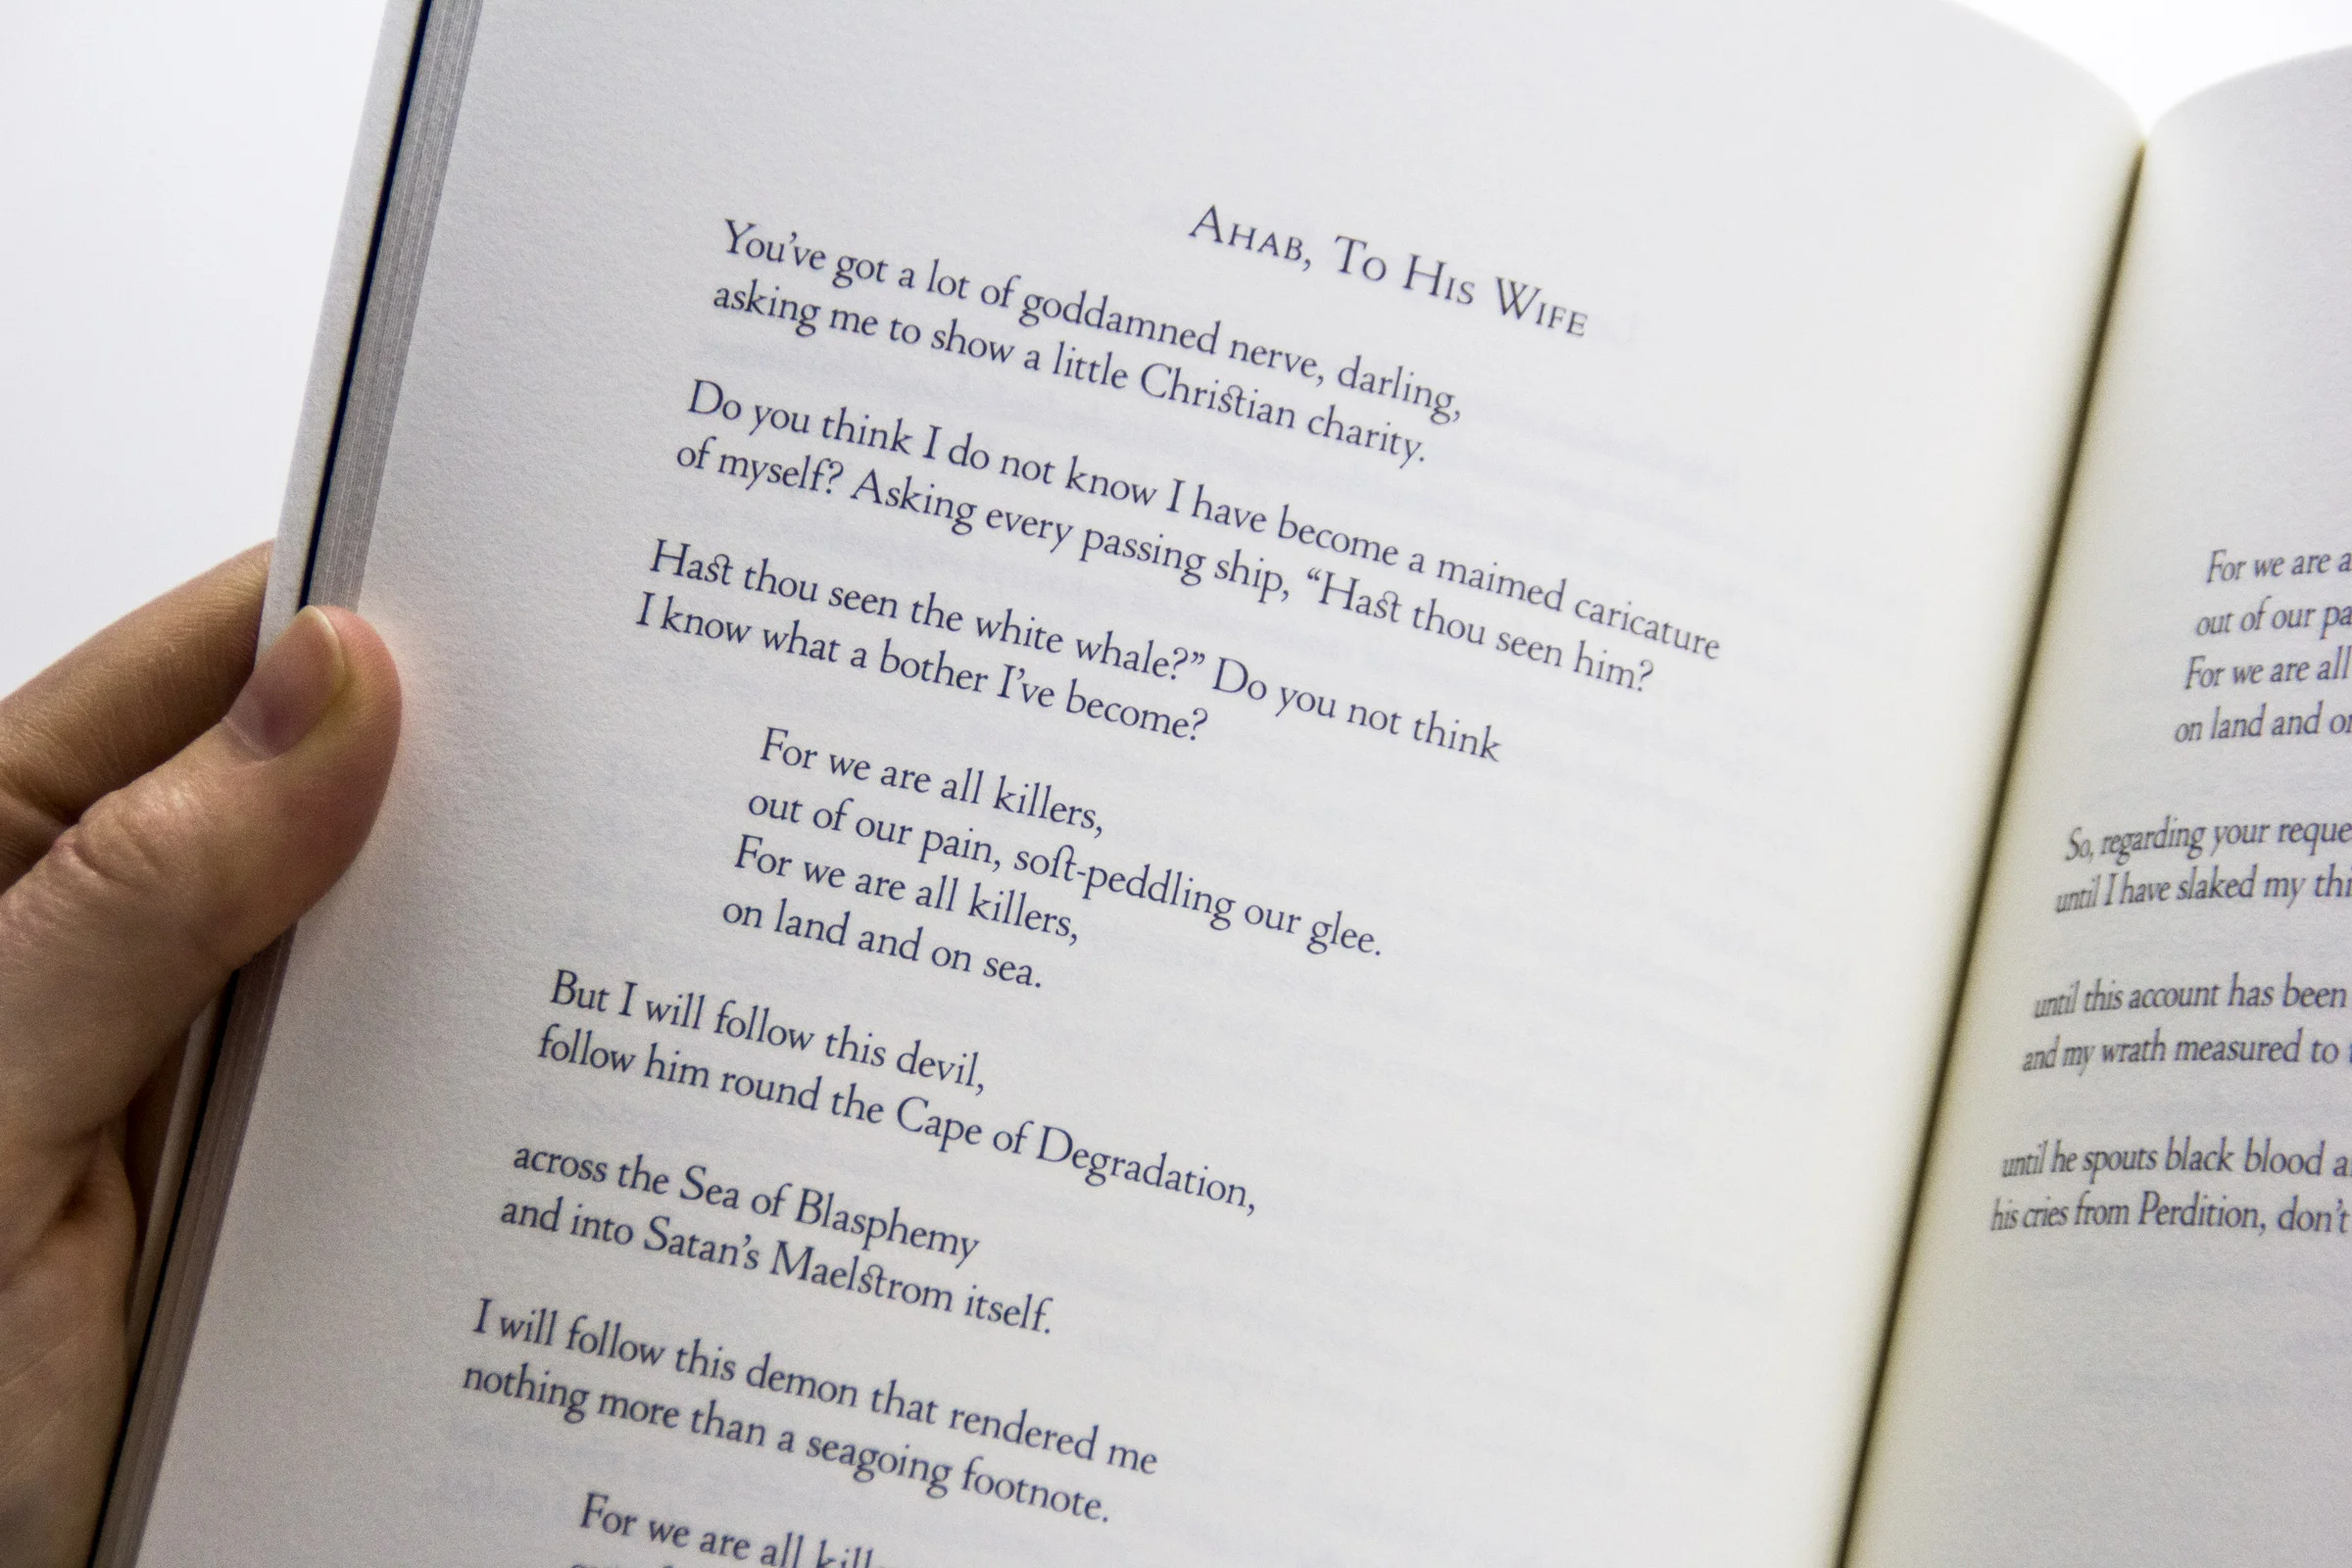 AHAB, TO HIS WIFE
You've got a lot of goddamned nerve, darling,
asking me to show a little Christian charity.
Do you think I do not know I have become a maimed caricature
of myself? Asking every passing ship, “Hast thou seen him?
Hast thou seen the white whale?” Do you not think
I know what a bother I've become?
For we are all killers,
out of our pain, soft-peddling our glee.
For we are all killers,
on land and on sea.
But I will follow this devil,
follow him round the Cape of Degradation,
across the Sea of Blasphemy
and into Satan's Maelstrom itself.
I will follow this demon that rendered me
nothing more than a seagoing footnote.
For we are all
For we are
out of our
For we are all
on land and
So, regarding your
until I have slaked my
until this account has been
and my wrath measured to
until he spouts black blood
his cries from Perdition, don't